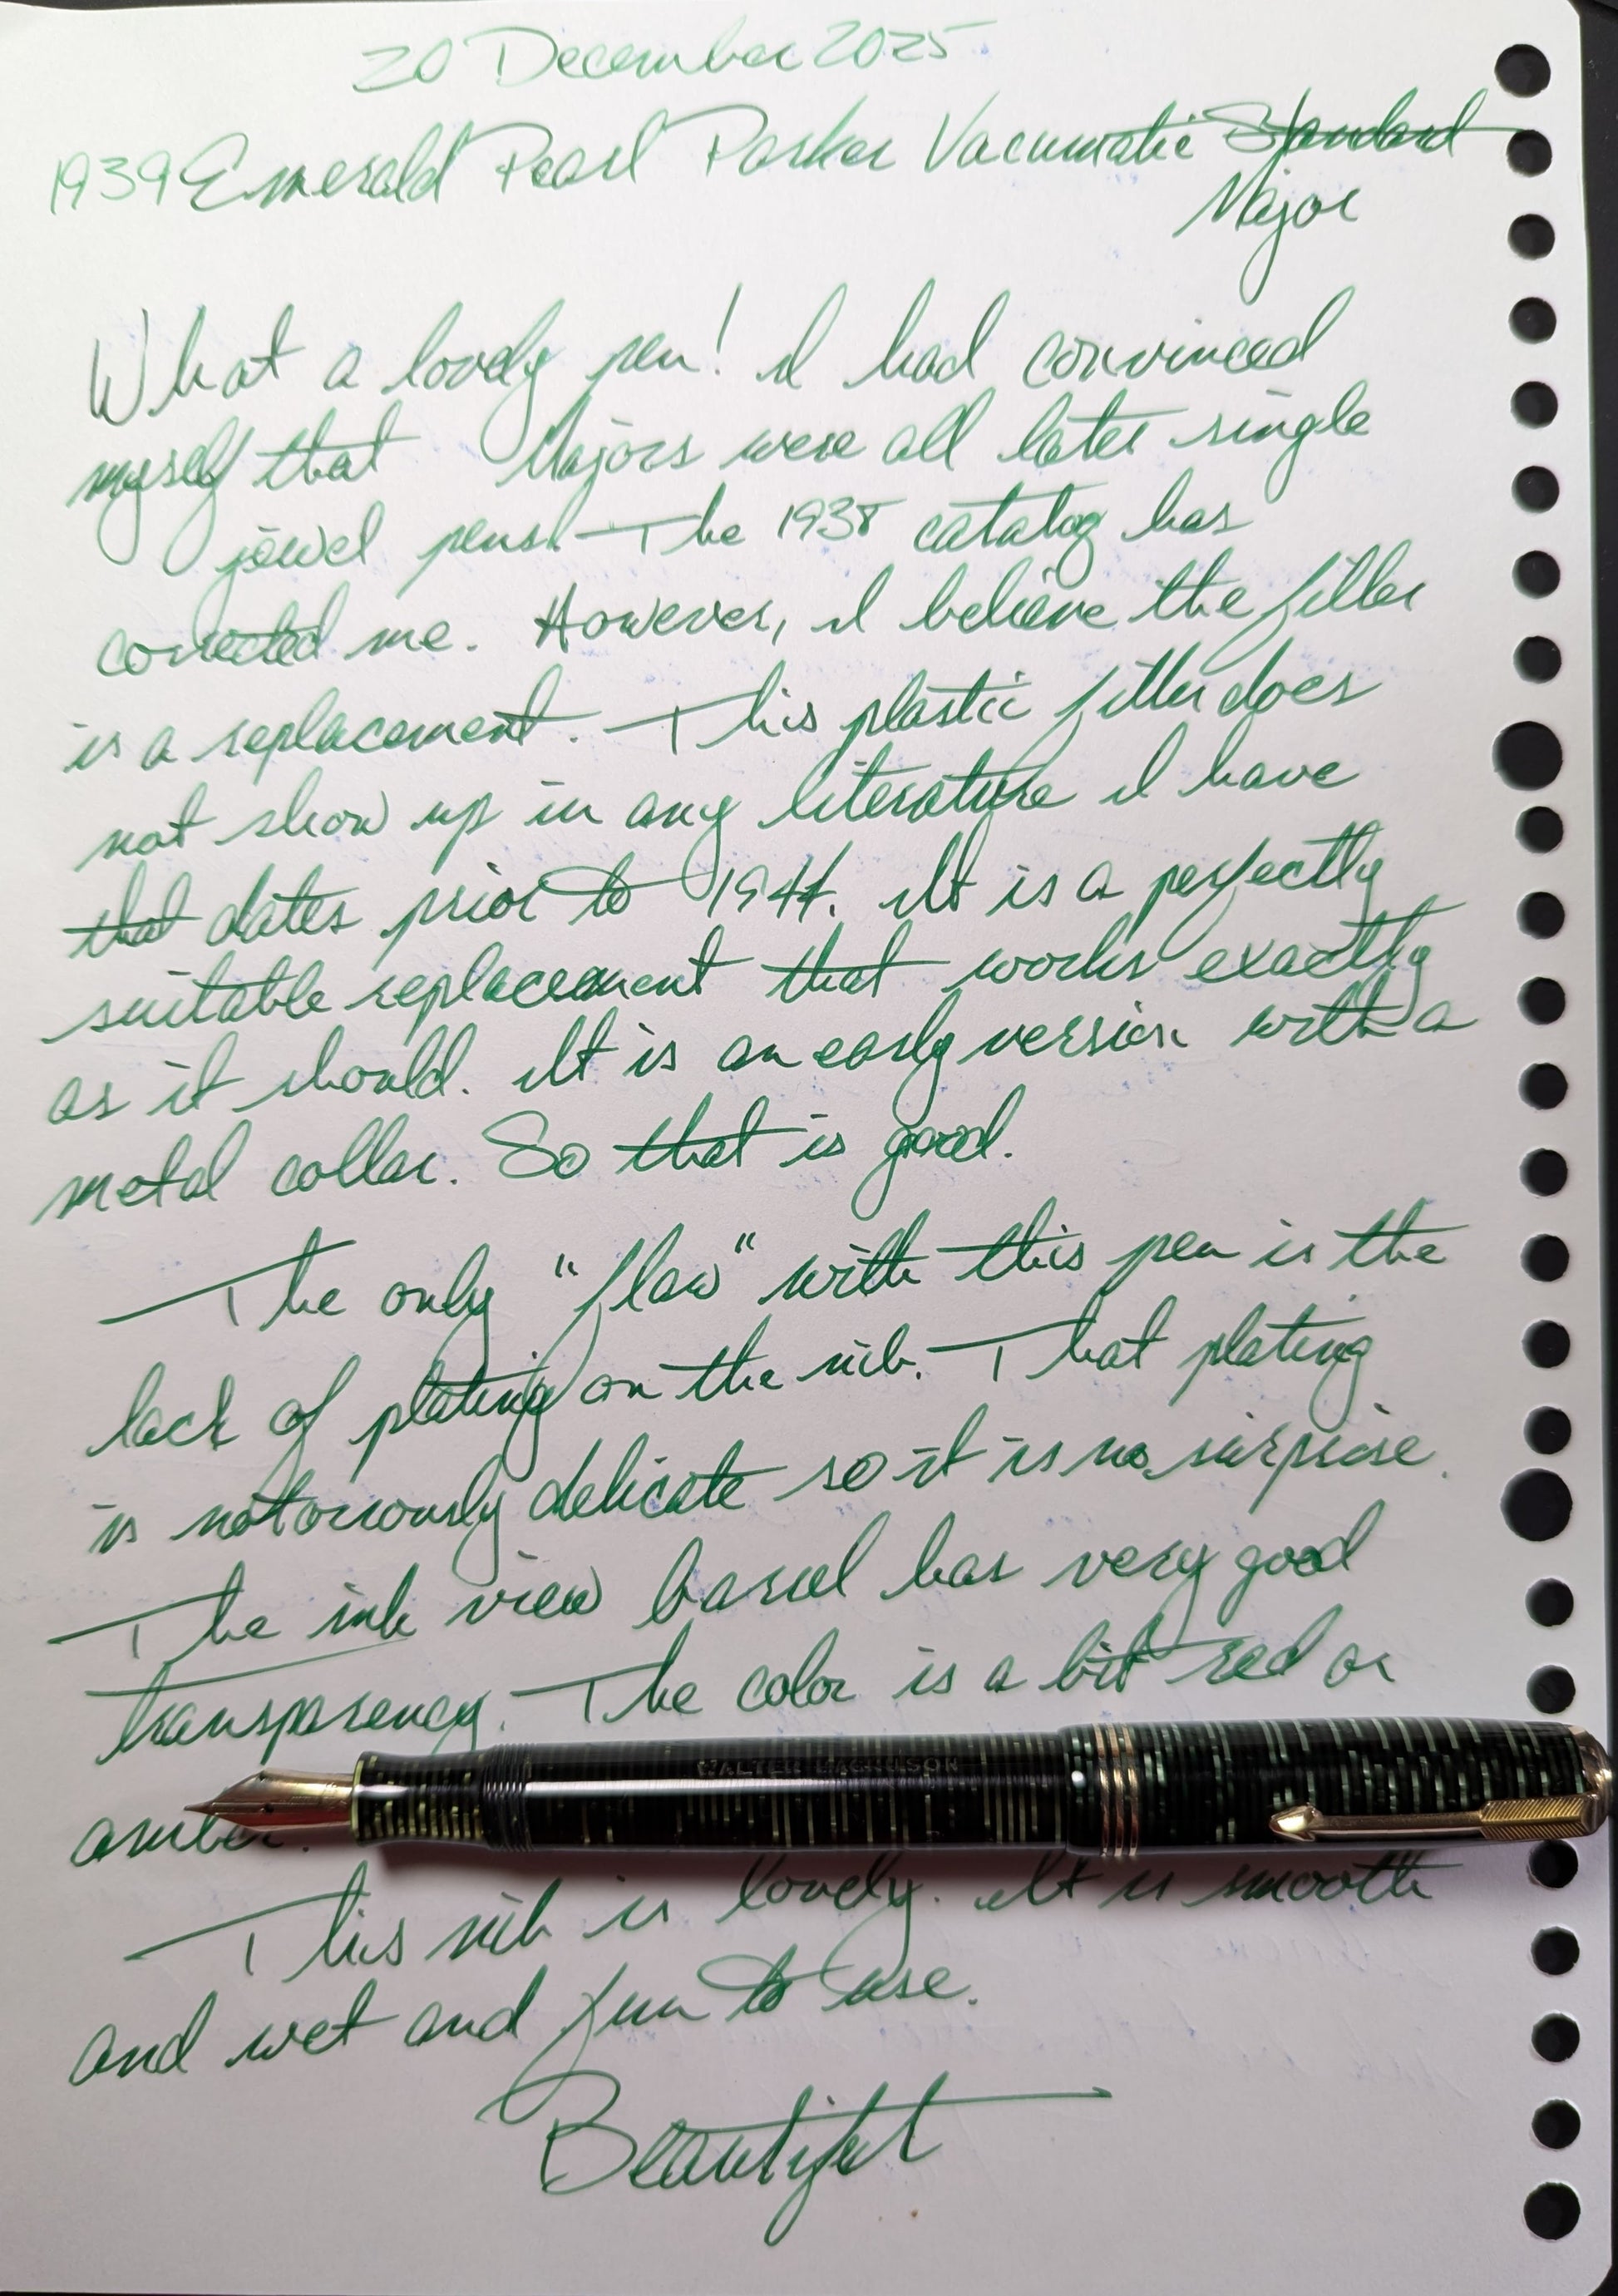 20 December 2025
1939 Emerald Pearl Parker Vacumatic ~~Standard~~
Major
What a lovely pen! I had convinced
myself that Majors were all later single
jewel pens. The 1938 catalog has
corrected me. However, I believe the filler
is a replacement. This plastic filler does
not show up in any literature I have
that dates prior to 1941. It is a perfectly
suitable replacement that works exactly
as it should. It is an early version with a
metal collar. So that is good.
The only "flaw" with this pen is the
lack of plating on the nib. That plating
is notoriously delicate so it is no surprise.
The ink view barrel has very good
transparency. The color is a bit red or
WALTER MAGNUSON
amber.
This nib is lovely. It is smooth
and wet and fun to use.
Beautiful